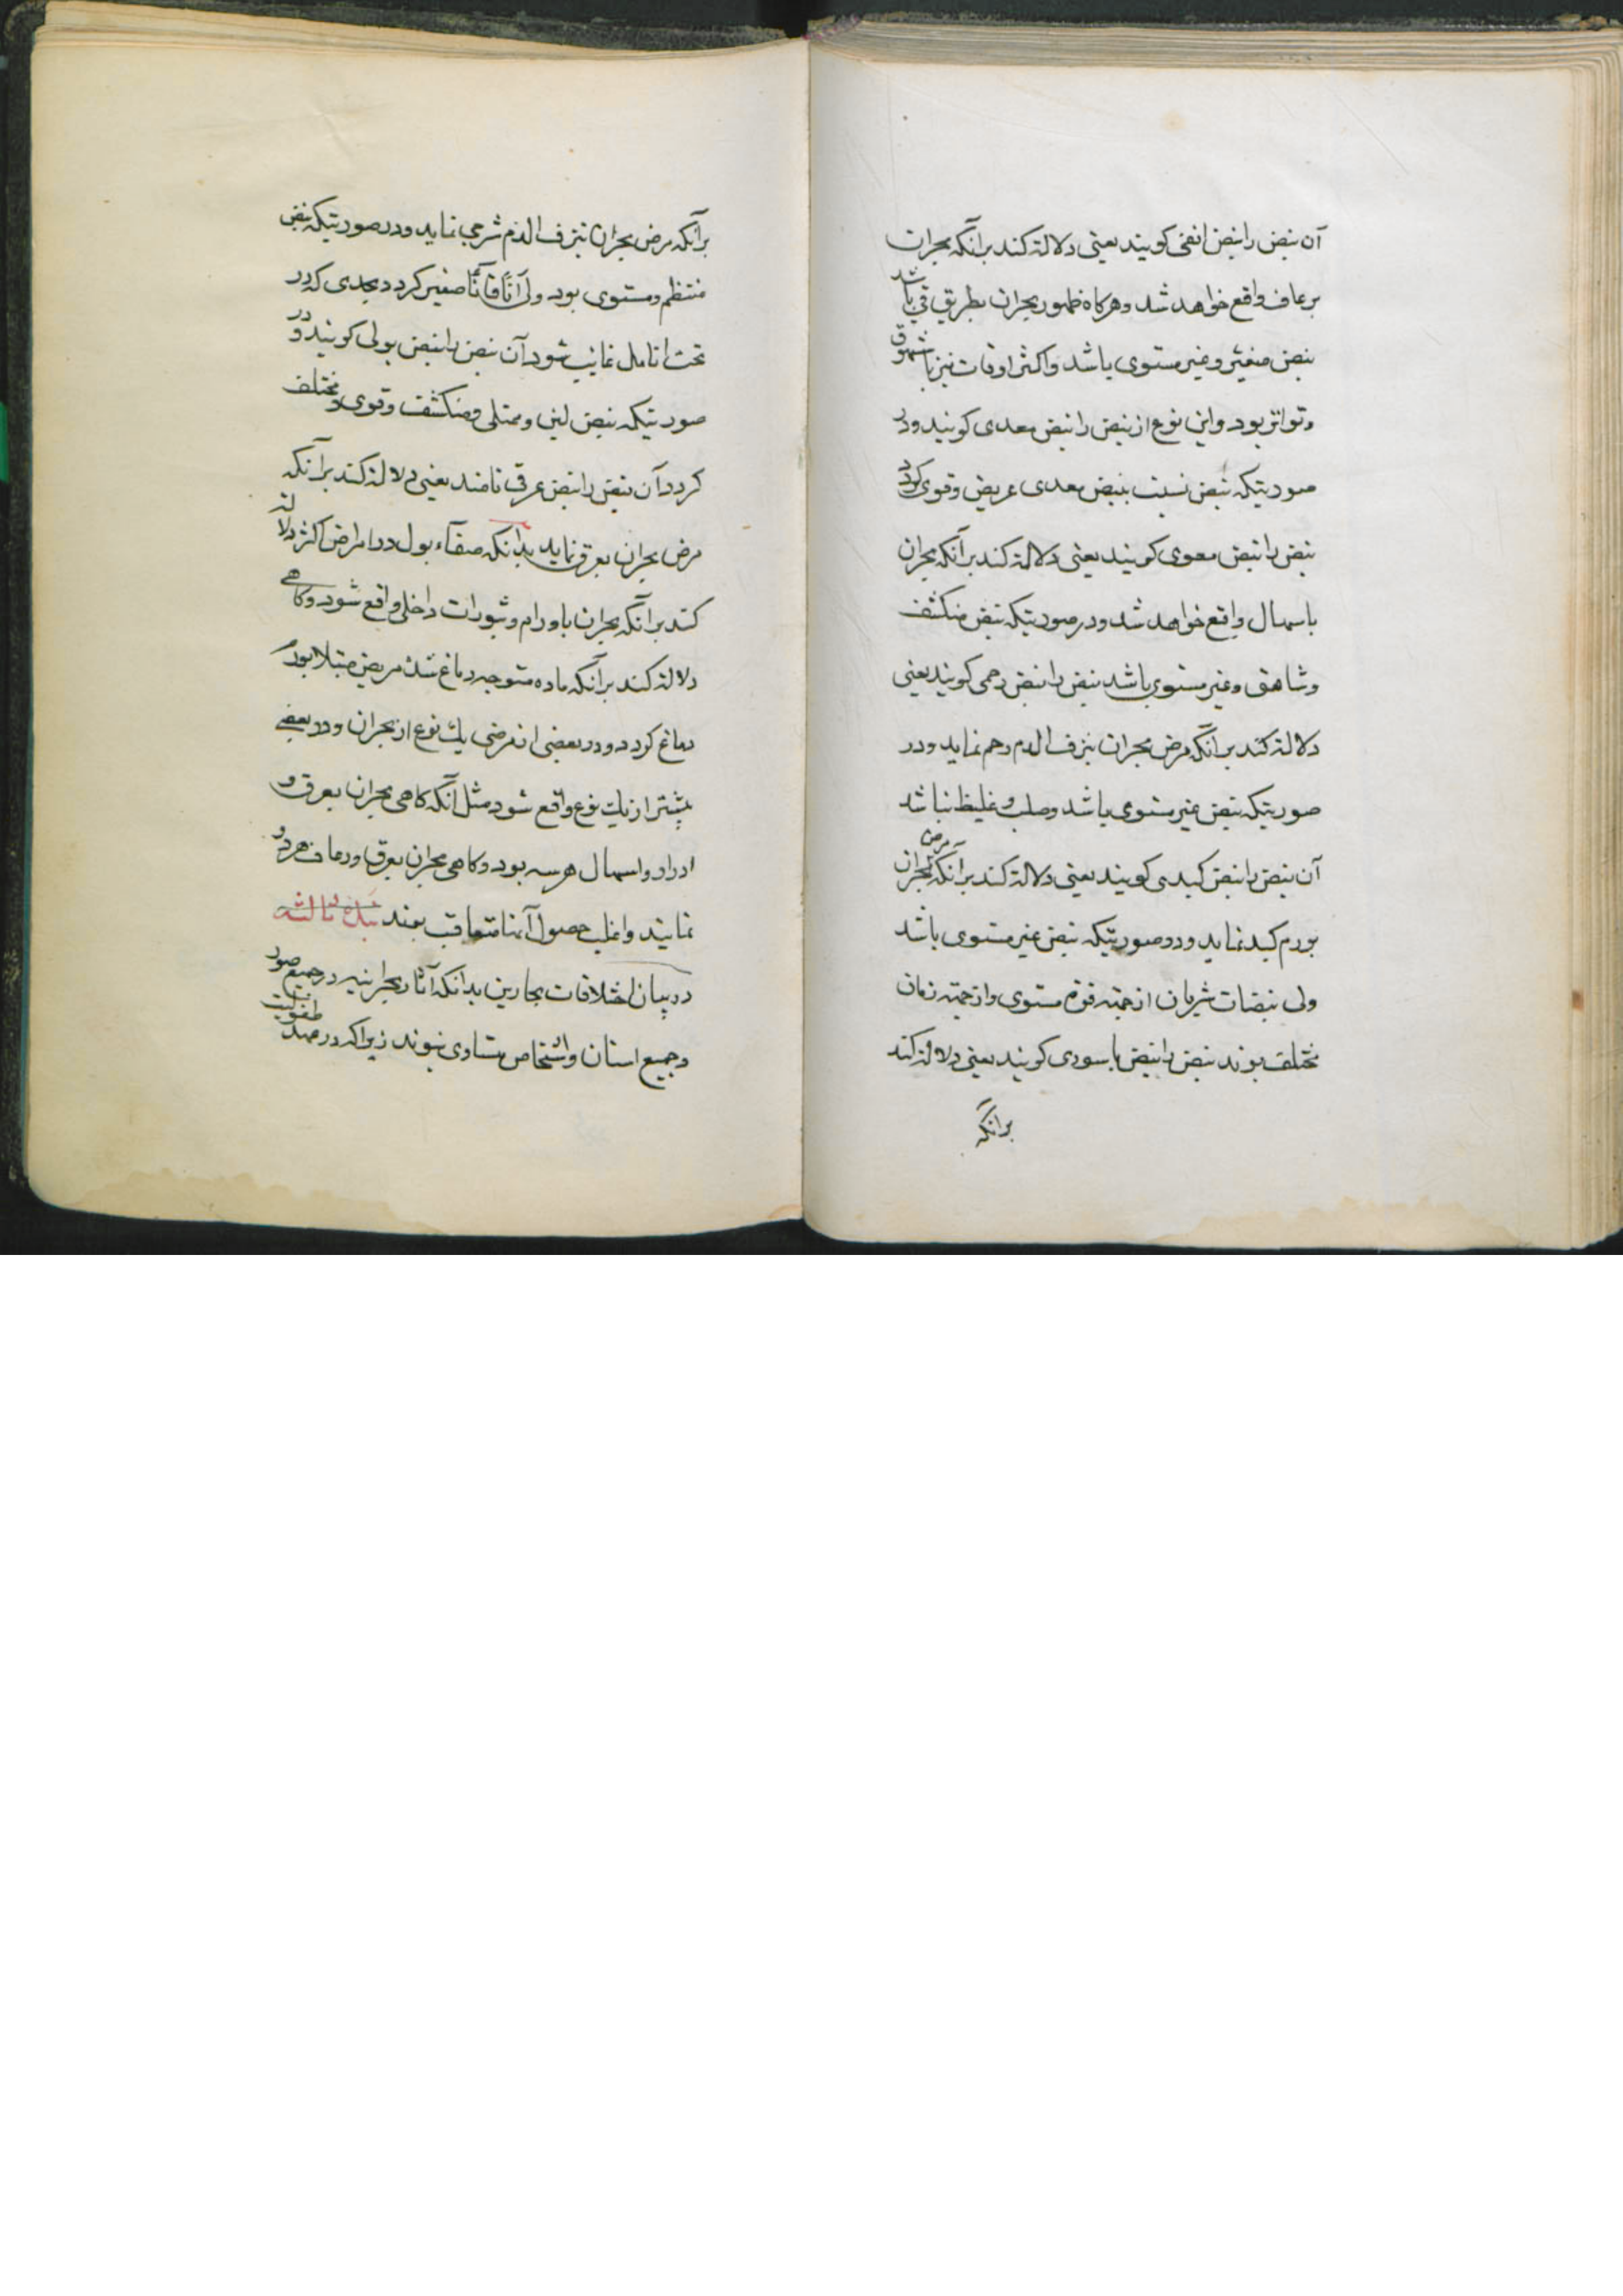 آن نبض را نبض انفی کویند یعنی دلالة کند برانکه بحران
برعاف واقع خواهد شد و هرکاه ظهور بحران بطریق قی باشد
نبض صغیر و غیر مستوی باشد و اکثر اوقات نیز با شهوق
و تواتر بود و این نوع از نبض را نبض معدی کویند و در
صورتیکه نبض نسبت بنبض معدی عریض و قوی کردد
نبض را نبض معوی کویند یعنی دلالة کند برآنکه بحران
باسهال واقع خواهد شد و در صورتیکه نبض منکشف
و شاهق و غیر مستوی باشد نبض را نبض رحمی کویند یعنی
دلالة کند برآنکه مرض بحران بنزف الدم رحم نماید و در
صورتیکه نبض غیر مستوی باشد و صلب و غلیظ نباشد
آن نبض را نبض کبدی کویند یعنی دلالة کند برآنکه مرض بحران
بورم کبد نماید و در صورتیکه نبض غیر مستوی باشد
ولی نبضات شریان از جهة قوة مستوی و از جهة زمان
مختلف بوند نبض را نبض باسوری کویند یعنی دلالة کند
برانکه
برآنکه مرض بحران بنزف الدم شرجی نماید و در صورتیکه نبض
منتظم و مستوی بود ولی آناً فآناً صغیر کردد بحدی که در
تحت انامل غایب شود آن نبض را نبض بولی کویند و در
صورتیکه نبض لین و ممتلی و منکشف و قوی و مختلف
کردد آن نبض را نبض عرقی نامند یعنی دلالة کند برآنکه
مرض بحران بعرق نماید بدانکه صفآء بول در امراض اکثر دلالة
کند برآنکه بحران باورام و بثورات داخلی واقع شود و کاهی
دلالة کند برآنکه ماده متوجه دماغ شده مریض مبتلا بورم
دماغ کردد و در بعضی از مرضی یک نوع از بحران و در بعضی
بیشتر از یک نوع واقع شود مثل آنکه کاهی بحران بعرق و
ادرار و اسهال هر سه بود و کاهی بحران بعرق و رعاف هر دو
نمایند و اغلب حصول آنها متعاقب بوند نبذه ثالثه
در بیان اختلافات بحارین بدانکه آثار بحرانیه در جمیع صور
و جمیع اسنان و اشخاص متساوی نبوند زیراکه در مرض طفولیت